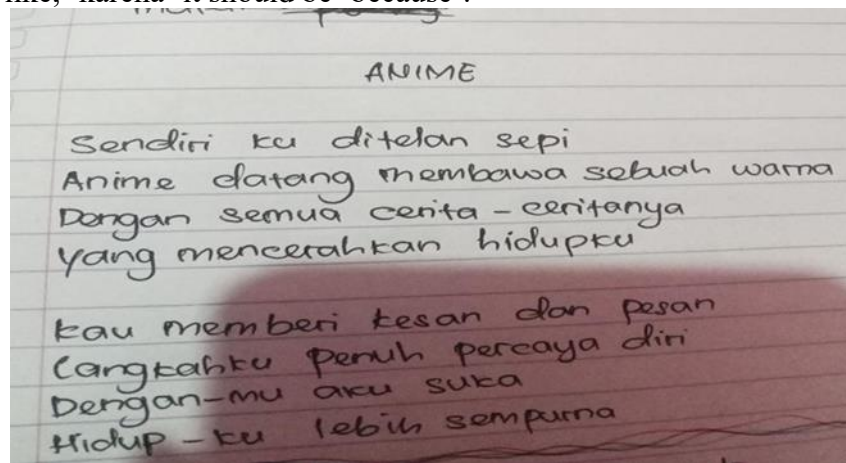 ANIME
Sendiri ku ditelan sepi
Anime datang membawa sebuah warna
Dengan semua cerita-ceritanya
Yang mencerahkan hidupku
Kau memberi kesan dan pesan
Langkahku penuh percaya diri
Dengan-mu aku suka
Hidup-ku lebih sempurna